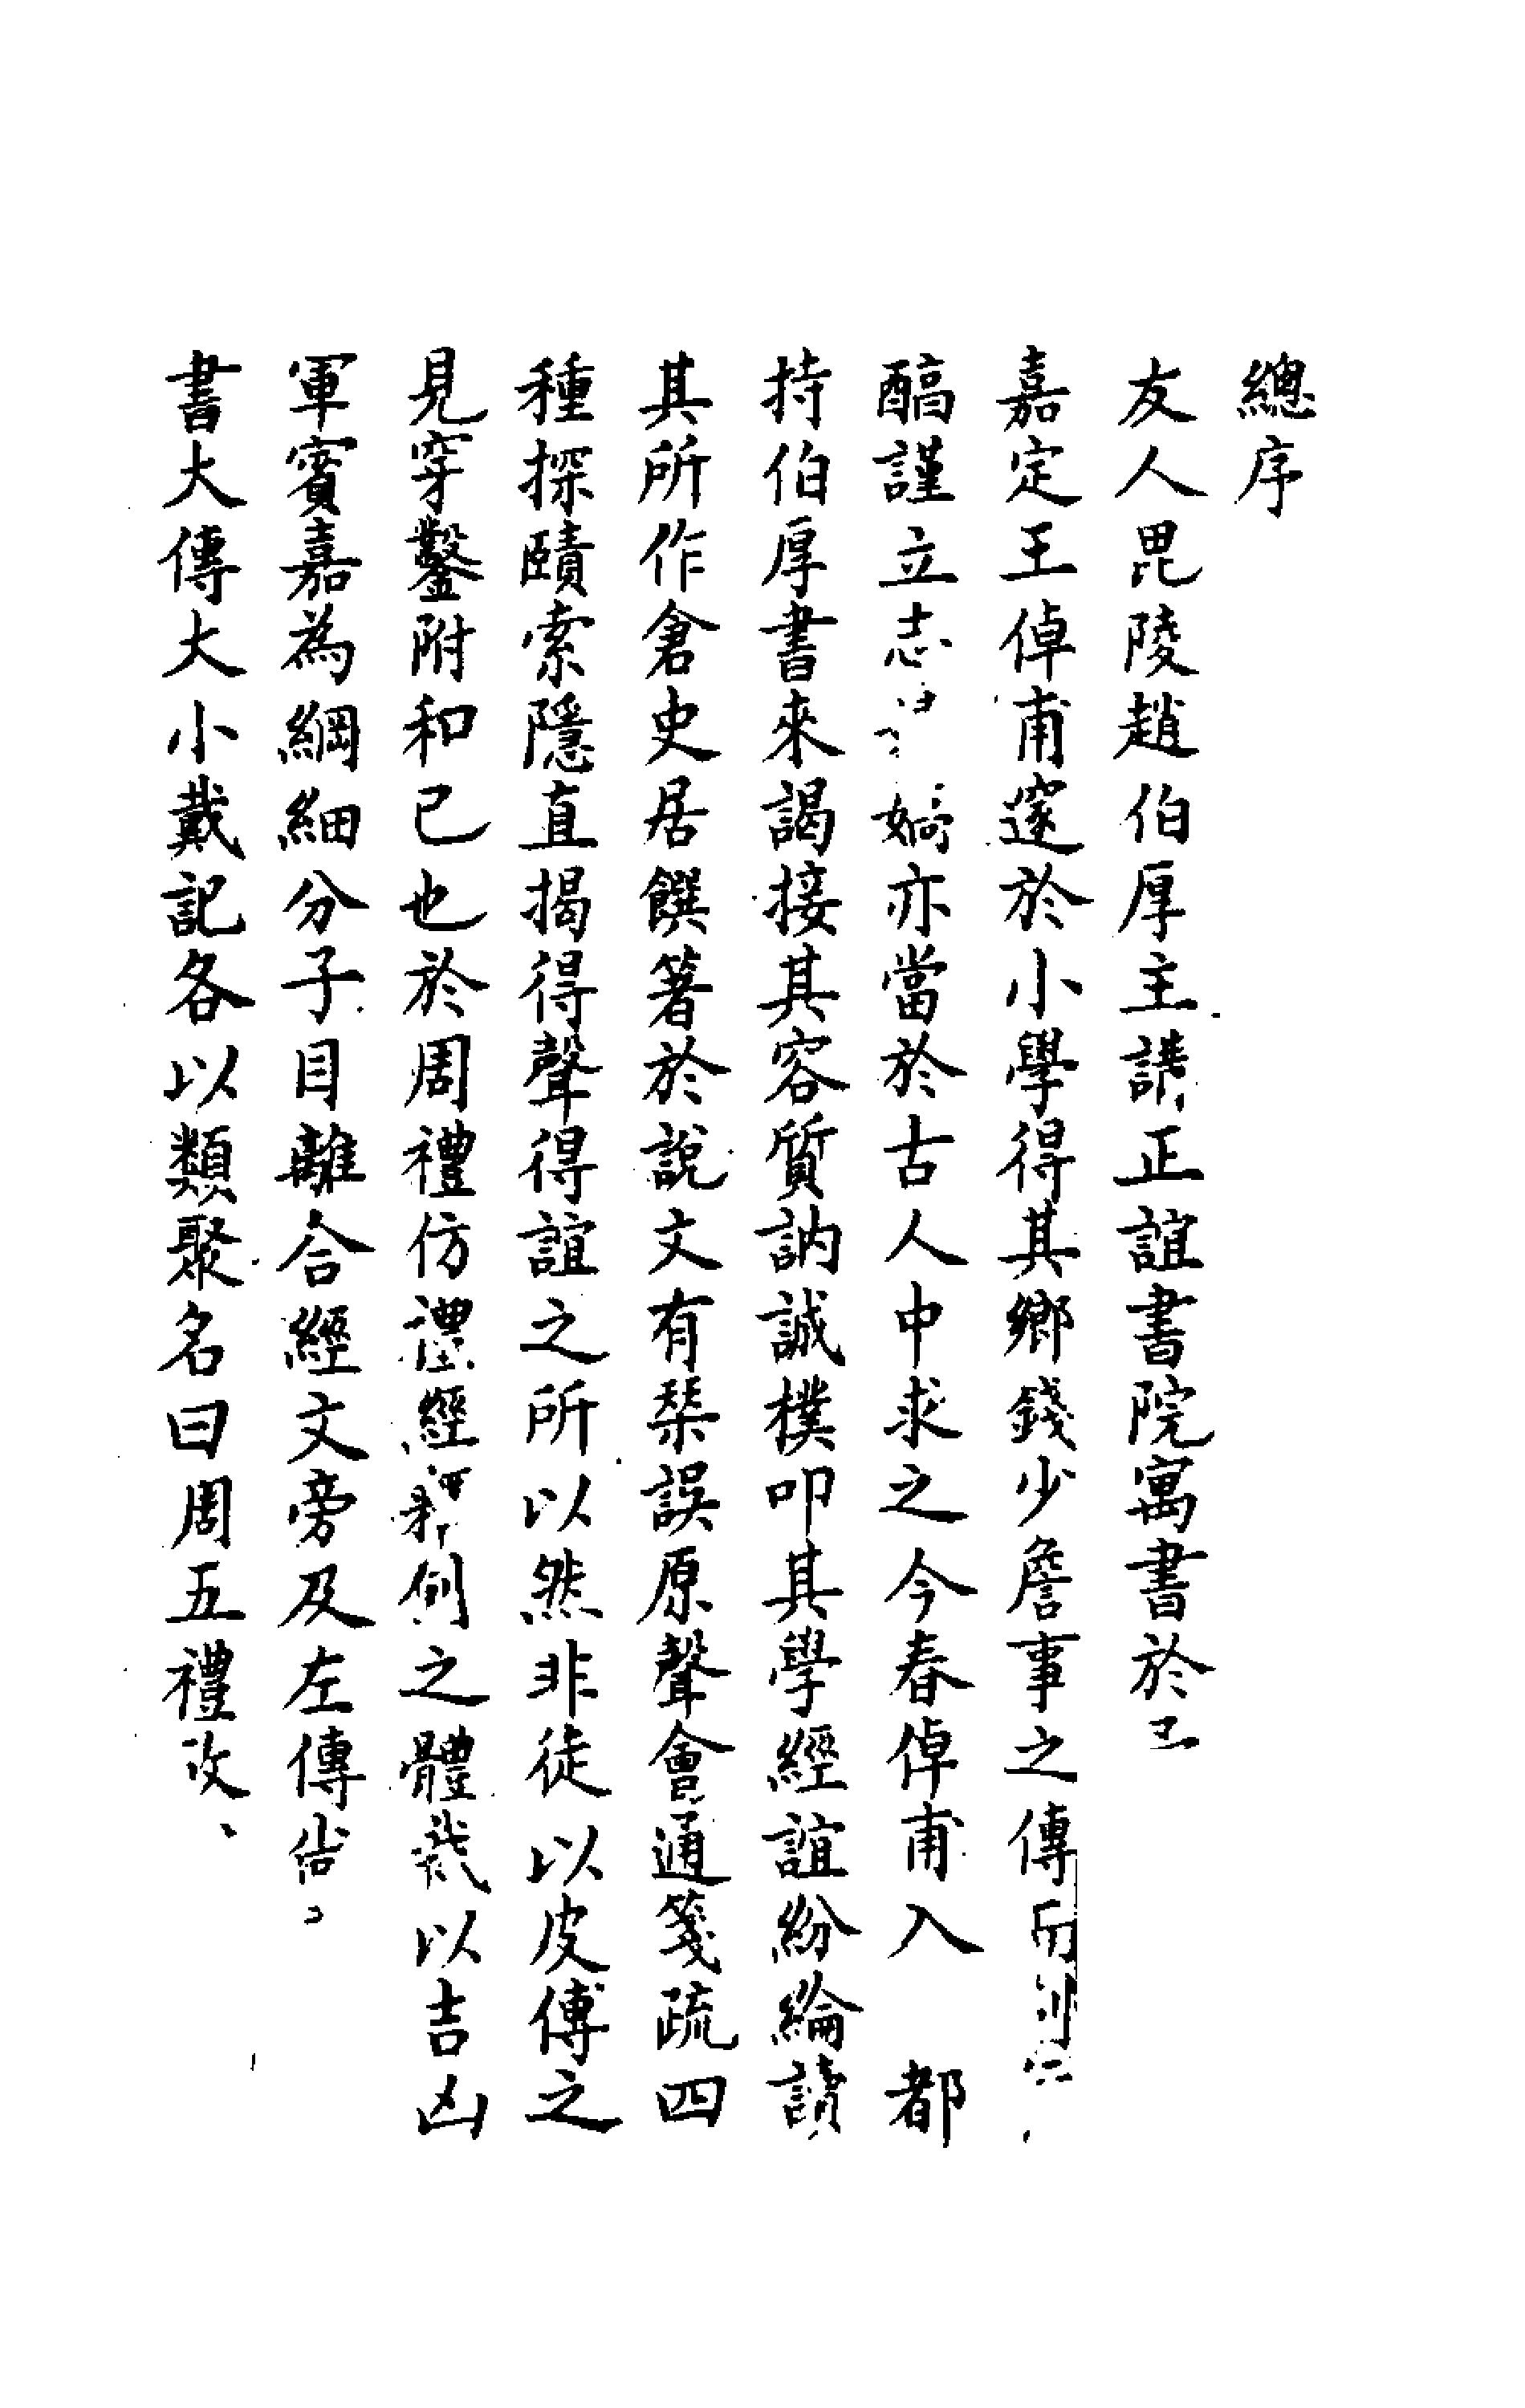 總序
友人毘陵趙伯厚主講正誼書院寓書於
嘉定王倬甫邃於小學得其鄉錢少詹事之傳而
醕謹立志亦當於古人中求之今春倬甫入都
持伯厚書來謁接其容質訥誠樸叩其學經誼紛綸讀
其所作倉史居饌箸於說文有琹誤原聲會通箋疏四
種探賾索隱直揭得聲得誼之所以然非徒以皮傅之
見穿鑿附和已也於周禮仿禮經釋例之體裁以吉凶
軍賓嘉為綱細分子目離合經文旁及左傳尚
書大傳大小戴記各以類聚名曰周五禮攷